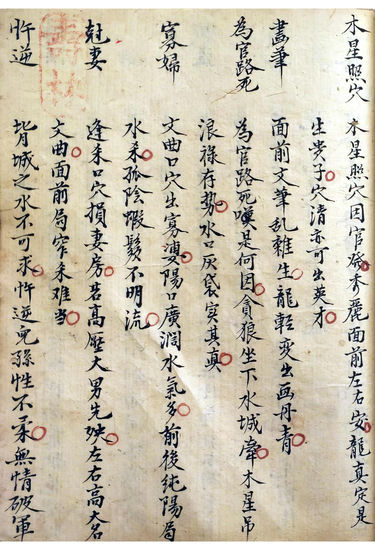 木星照穴 木星照穴因官發秀麗面前左右安龍真定是
生贵子穴清亦可出英才
畫筆 面前文筆乱雜生龍変出画丹青
為官路死 為官路死嘆是何因貪狼坐下水城牽木星吊
浪禄存势水口灰袋实其真
寡婦 文曲口穴出寡婆陽口廣濶水氣多前後純陽局
水杀孤陰不明流
尅妻 逢禾口穴損妻房若高壓大男先殃左右高大名
文曲面前局窄未难当
忤逆 背城之水不可求忤逆兒孫性不柔無情破軍